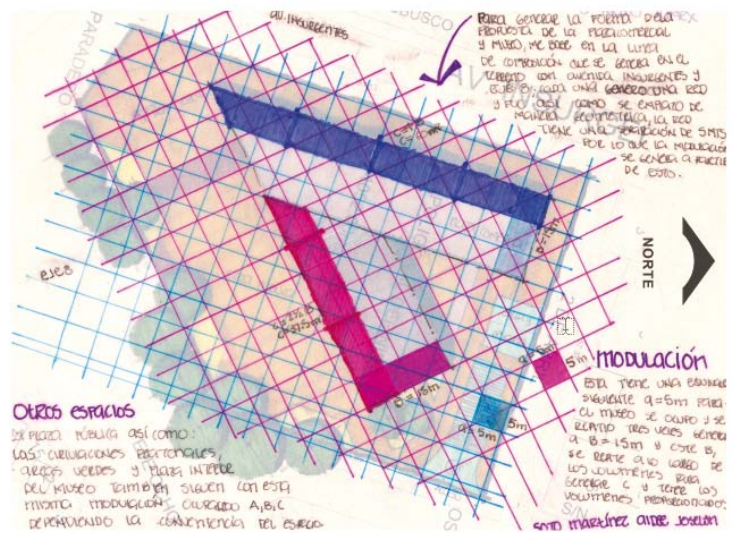 AV. INSURGENTES
PARA GENERAR LA FORMA DELA
PROPUESTA DE LA PLAZA COMERCIAL
Y MUSEO, ME BASE EN LA LINEA
DE COMBINACIÓN QUE SE GENERA EN EL
TERRENO CON AVENIDA INSURGENTES Y
CADA UNA GENERO UNA RED
Y FUE ASÍ COMO SE EMPAZO DE
MANERA GEOMETRICA, LA RED
TIENE UNA SEPARACIÓN DE 5 MTS
POR LO QUE LA MODULACIÓN
SE GENERA A PARTIR
DE ESTO.
PARADERO
NORTE
EJES
B=15m
C=37.5m
B=15m
a=5m
5m
a=5m
5m
MODULACIÓN
ESTA TIENE UNA
SIGUIENTE a=5m PARA
EL MUSEO SE OCUPO Y SE
REPITIO TRES VECES
a B=15m Y ESTE B,
SE REPITE A LO LARGO DE
LOS VOLUMENES PARA
GENERAR C Y TENER LOS
VOLUMENES PROPORCIONADOS.
OTROS ESPACIOS
PLAZA PÚBLICA ASÍ COMO:
LAS CIRCULACIONES PEATONALES,
AREAS VERDES Y PLAZA INTERIOR
DEL MUSEO TAMBIEN SIGUEN CON ESTA
MISMA MODULACIÓN USANDO A,B,C
DEPENDIENDO LA CONVENIENCIA DEL ESPACIO.
SOTO MARTÍNEZ AIDEE JOSELIN